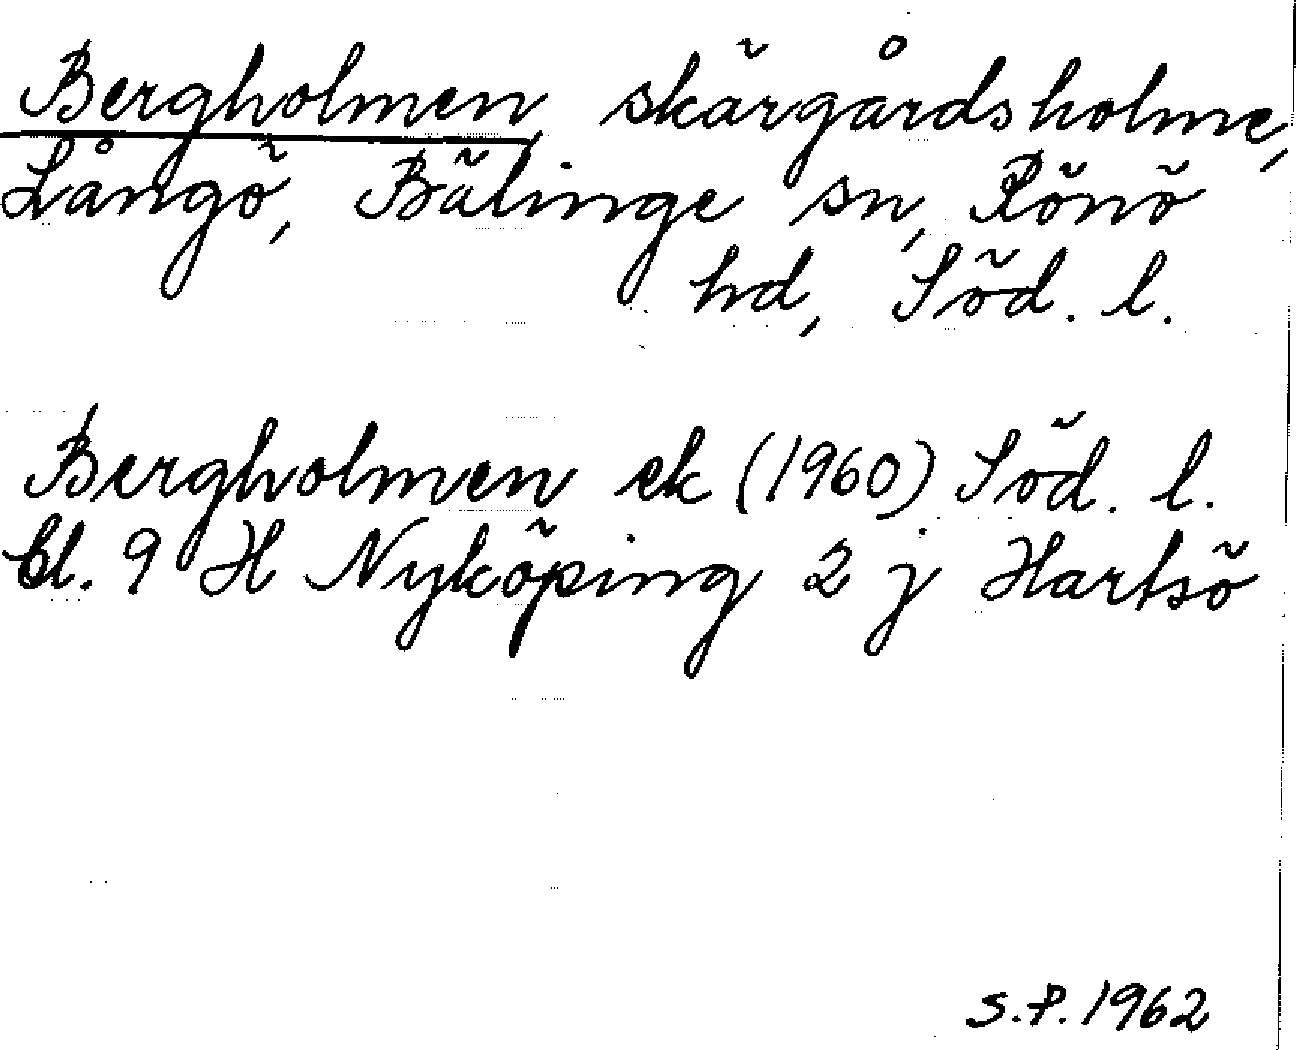 Bergholmen, skärgårdsholme,
Långö, Bälinge sn, Rönö
hd, Söd. l.
Bergholmen ek (1960) Söd. l.
bl. 9 H Nyköping 2 j Hartsö
S.P. 1962